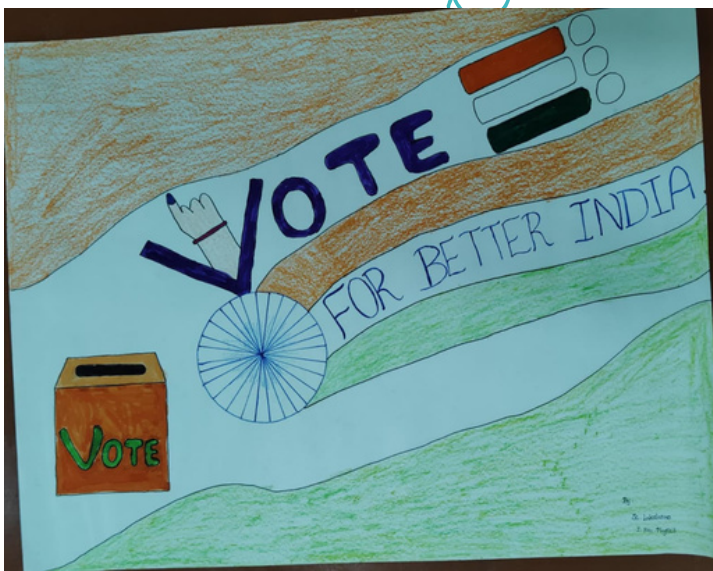 VOTE
FOR BETTER INDIA.
VOTE
By